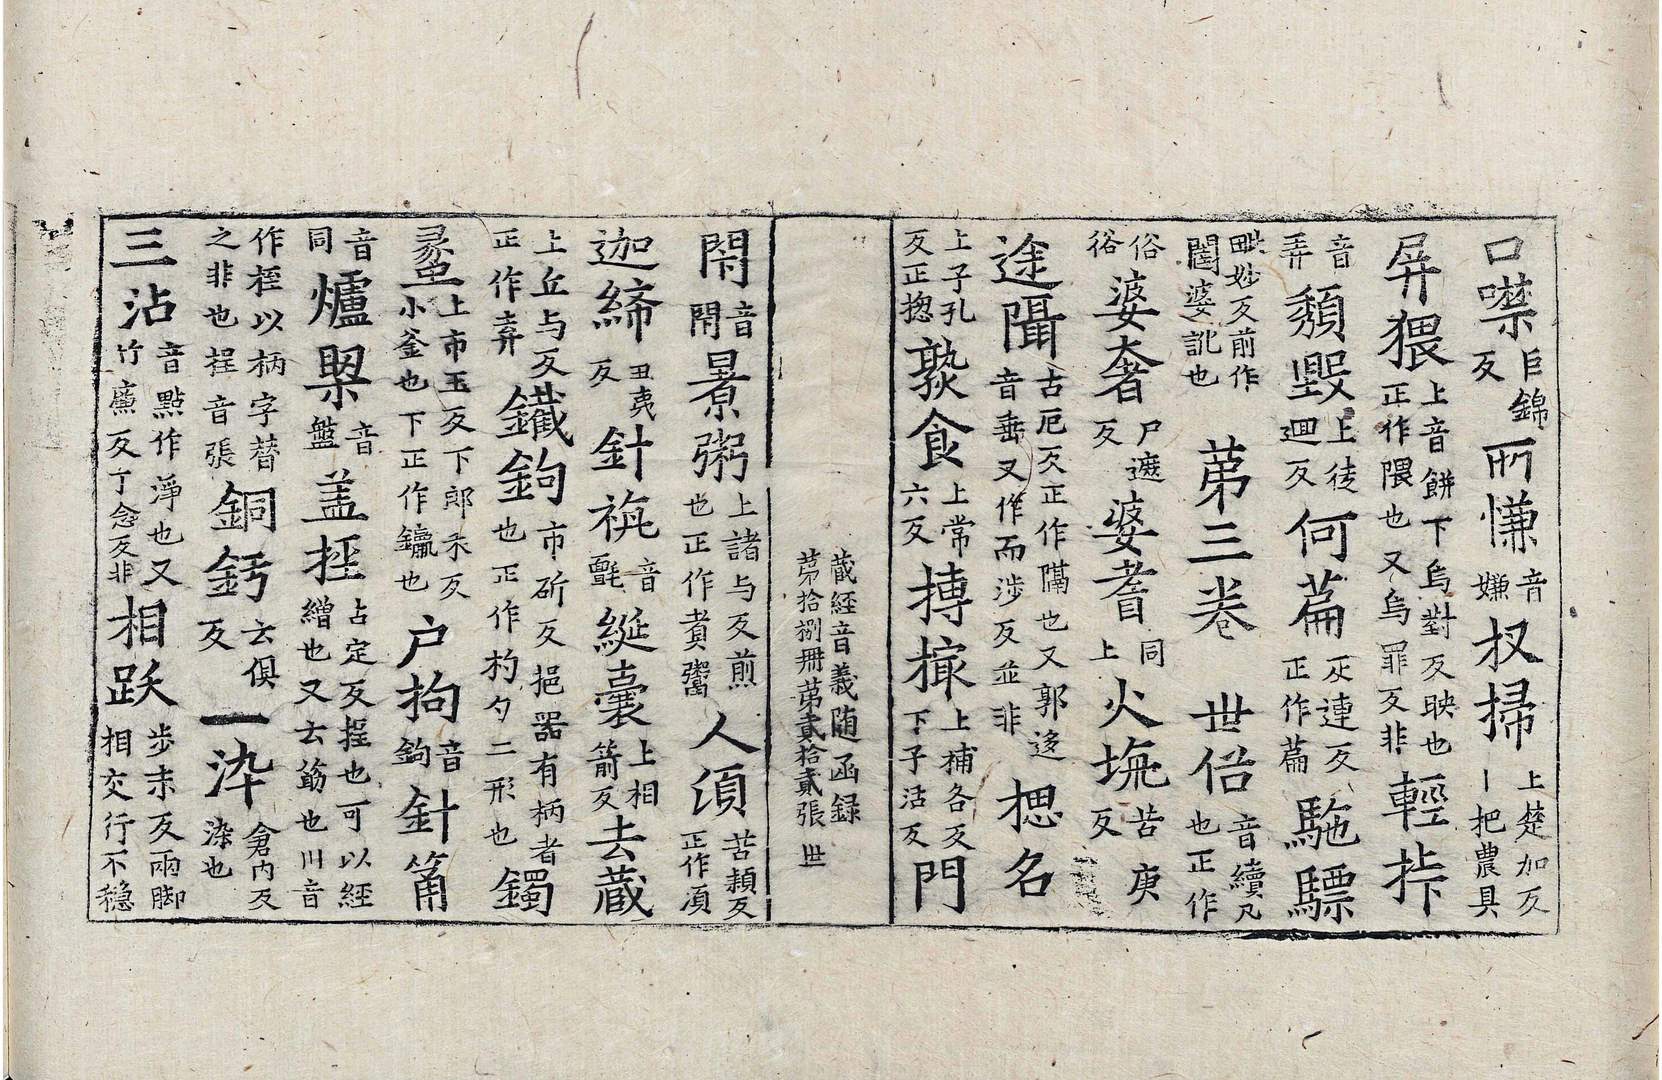 口噤巨錦反所慊音嫌杈掃上楚加反丨把農具
屏猥上音餅下烏對反映也正作隈也又烏罪反非輕㧊
音弄頽毀上徒迴反何萹疋連反正作篇駞驃
毗妙反前作闍婆訛也第三卷世俗音續凡也正作
俗俗婆奢尸遮反婆耆同上火坑苦庚反
途隔古厄反正作隔也又郭迻音垂又作而涉反並非摠名
上子孔反正揔孰食上常六反搏撮上補各反下子活反門
藏經音義随函録第拾捌冊第貳拾貳張世
閇音閇㬌粥上諸与反煎也正作䰞鬻人湏苦頼反正作湏
迦絺丑夷反針氈音氈綖囊上相箭反去藏
上丘与反正作弆鐵鉤市斫反挹器有柄者也正作杓勺二形也鐲
蠡上市玉反下郎禾反小釜也下正作鑼也户拘音鉤針筩
音同爐槃音盤盖挳占定反揘也可以經繒也又去䈥也川音
作桎以柄字替之非也桯音張銅鈣云俱反一染倉内反染也
三沾音點作淨也又竹廉反丁念反非相跃步末反兩脚相交行不穏